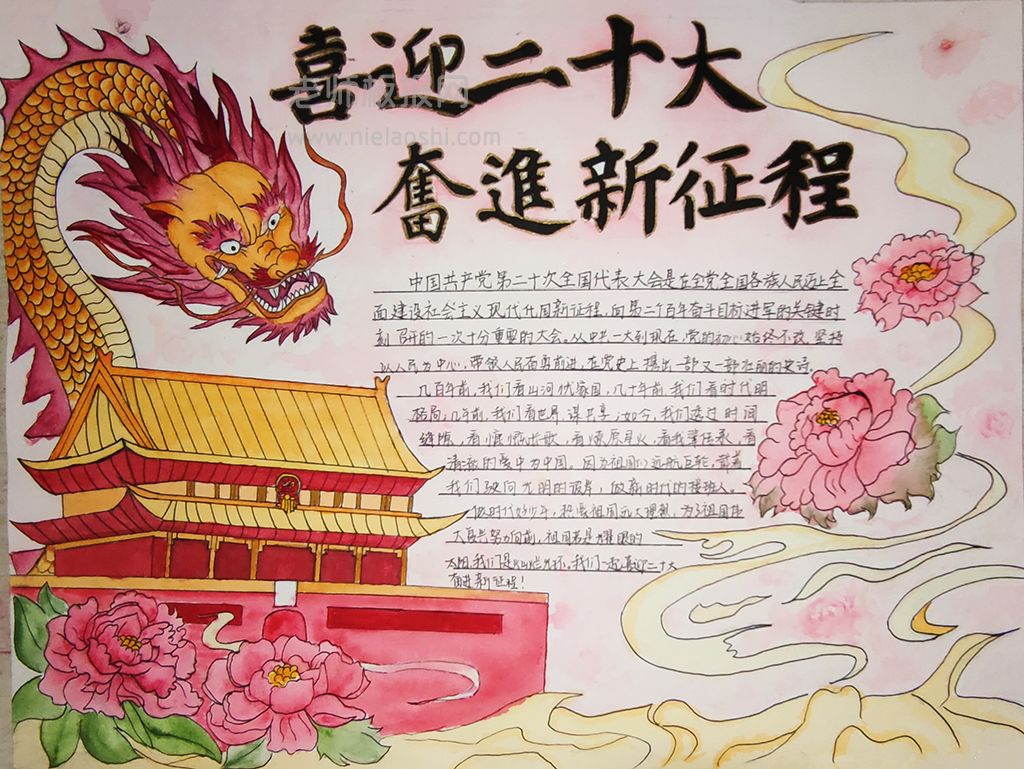 喜迎二十大
老师板报网
www.nielaoshi.com
奮進新征程
中国共产党第二十次全国代表大会是在全党全国各族人民迈上全
面建设社会主义现代化国新征程,向第二个百年奋斗目标进军的关键时
刻召开的一次十分重要的大会。从中共一大到现在,党的初心始终不改,坚持
以人民为中心,带领人民奋勇前进,在党史上撰出一部又一部壮丽的史诗。
几百年前,我们看山河忧家国,几十年前,我们看时代明
格局,几年前,我们看世界谋共享;如今,我们透过时间
缝隙,看慷慨长歌,看燎原星火,看
的爱中为中国。因为祖国似远航巨轮,载着
我们驶向光明的彼岸,做新时代的接班人。
做时代好少年,积
努力向前,祖国若是耀眼的
太阳,我们是。我们一起喜迎二十大
奋进新征程!